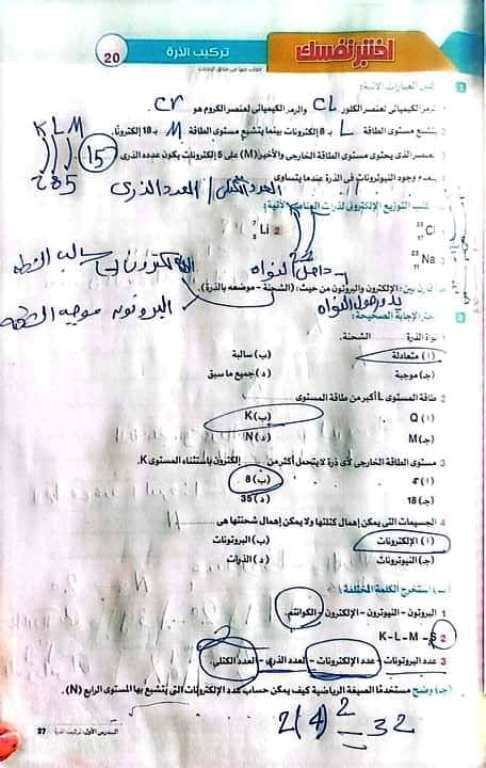 اختبر نفسك
تركيب الذرة
20
الرمز الكيميائى لعنصر الكلور CL والرمز الكيميائى لعنصر الكروم هو Cr
يتشبع مستوى الطاقة L بـ 8 إلكترونات بينما يتشبع مستوى الطاقة M بـ 18 إلكترونًا.
العنصر الذى يحتوى مستوى الطاقة الخارجى والأخير (M) على 5 إلكترونات يكون عدده الذرى 15
K L M
2 8 5
وجود النيوترونات فى الذرة عندما يتساوى
العدد الكتلى / العدد الذرى
اكتب التوزيع الإلكترونى لذرات العناصر الآتية:
Cl
Li
Na
قارن بين: الإلكترون والبروتون من حيث: (الشحنة - موضعه بالذرة).
سالب الشحنة
داخل النواه
البروتون موجبه الشحنة
يدور حول النواه
اختر الإجابة الصحيحة:
1 نواة الذرة الشحنة.
(أ) متعادلة (ب) سالبة
(جـ) موجبة (د) جميع ما سبق
2 طاقة المستوى L أكبر من طاقة المستوى
(أ) Q (ب) K
(جـ) M (د) N
3 مستوى الطاقة الخارجى لأى ذرة لا يتحمل أكثر من إلكترون باستثناء المستوى K.
(ب) 8
(جـ) 18 (د) 35
4 الجسيمات التى يمكن إهمال كتلتها ولا يمكن إهمال شحنتها هى
(أ) الإلكترونات (ب) البروتونات
(جـ) النيوترونات (د) الذرات
(ب) استخرج الكلمة المختلفة:
1 البروتون - النيوترون - الإلكترون - الكوانتم.
2 K - L - M - S
3 عدد البروتونات - عدد الإلكترونات - العدد الذرى - العدد الكتلى.
(جـ) وضح مستخدمًا الصيغة الرياضية كيف يمكن حساب عدد الإلكترونات التى يتشبع بها المستوى الرابع (N).
2(4)² = 32
الدرس الأول: تركيب الذرة 37